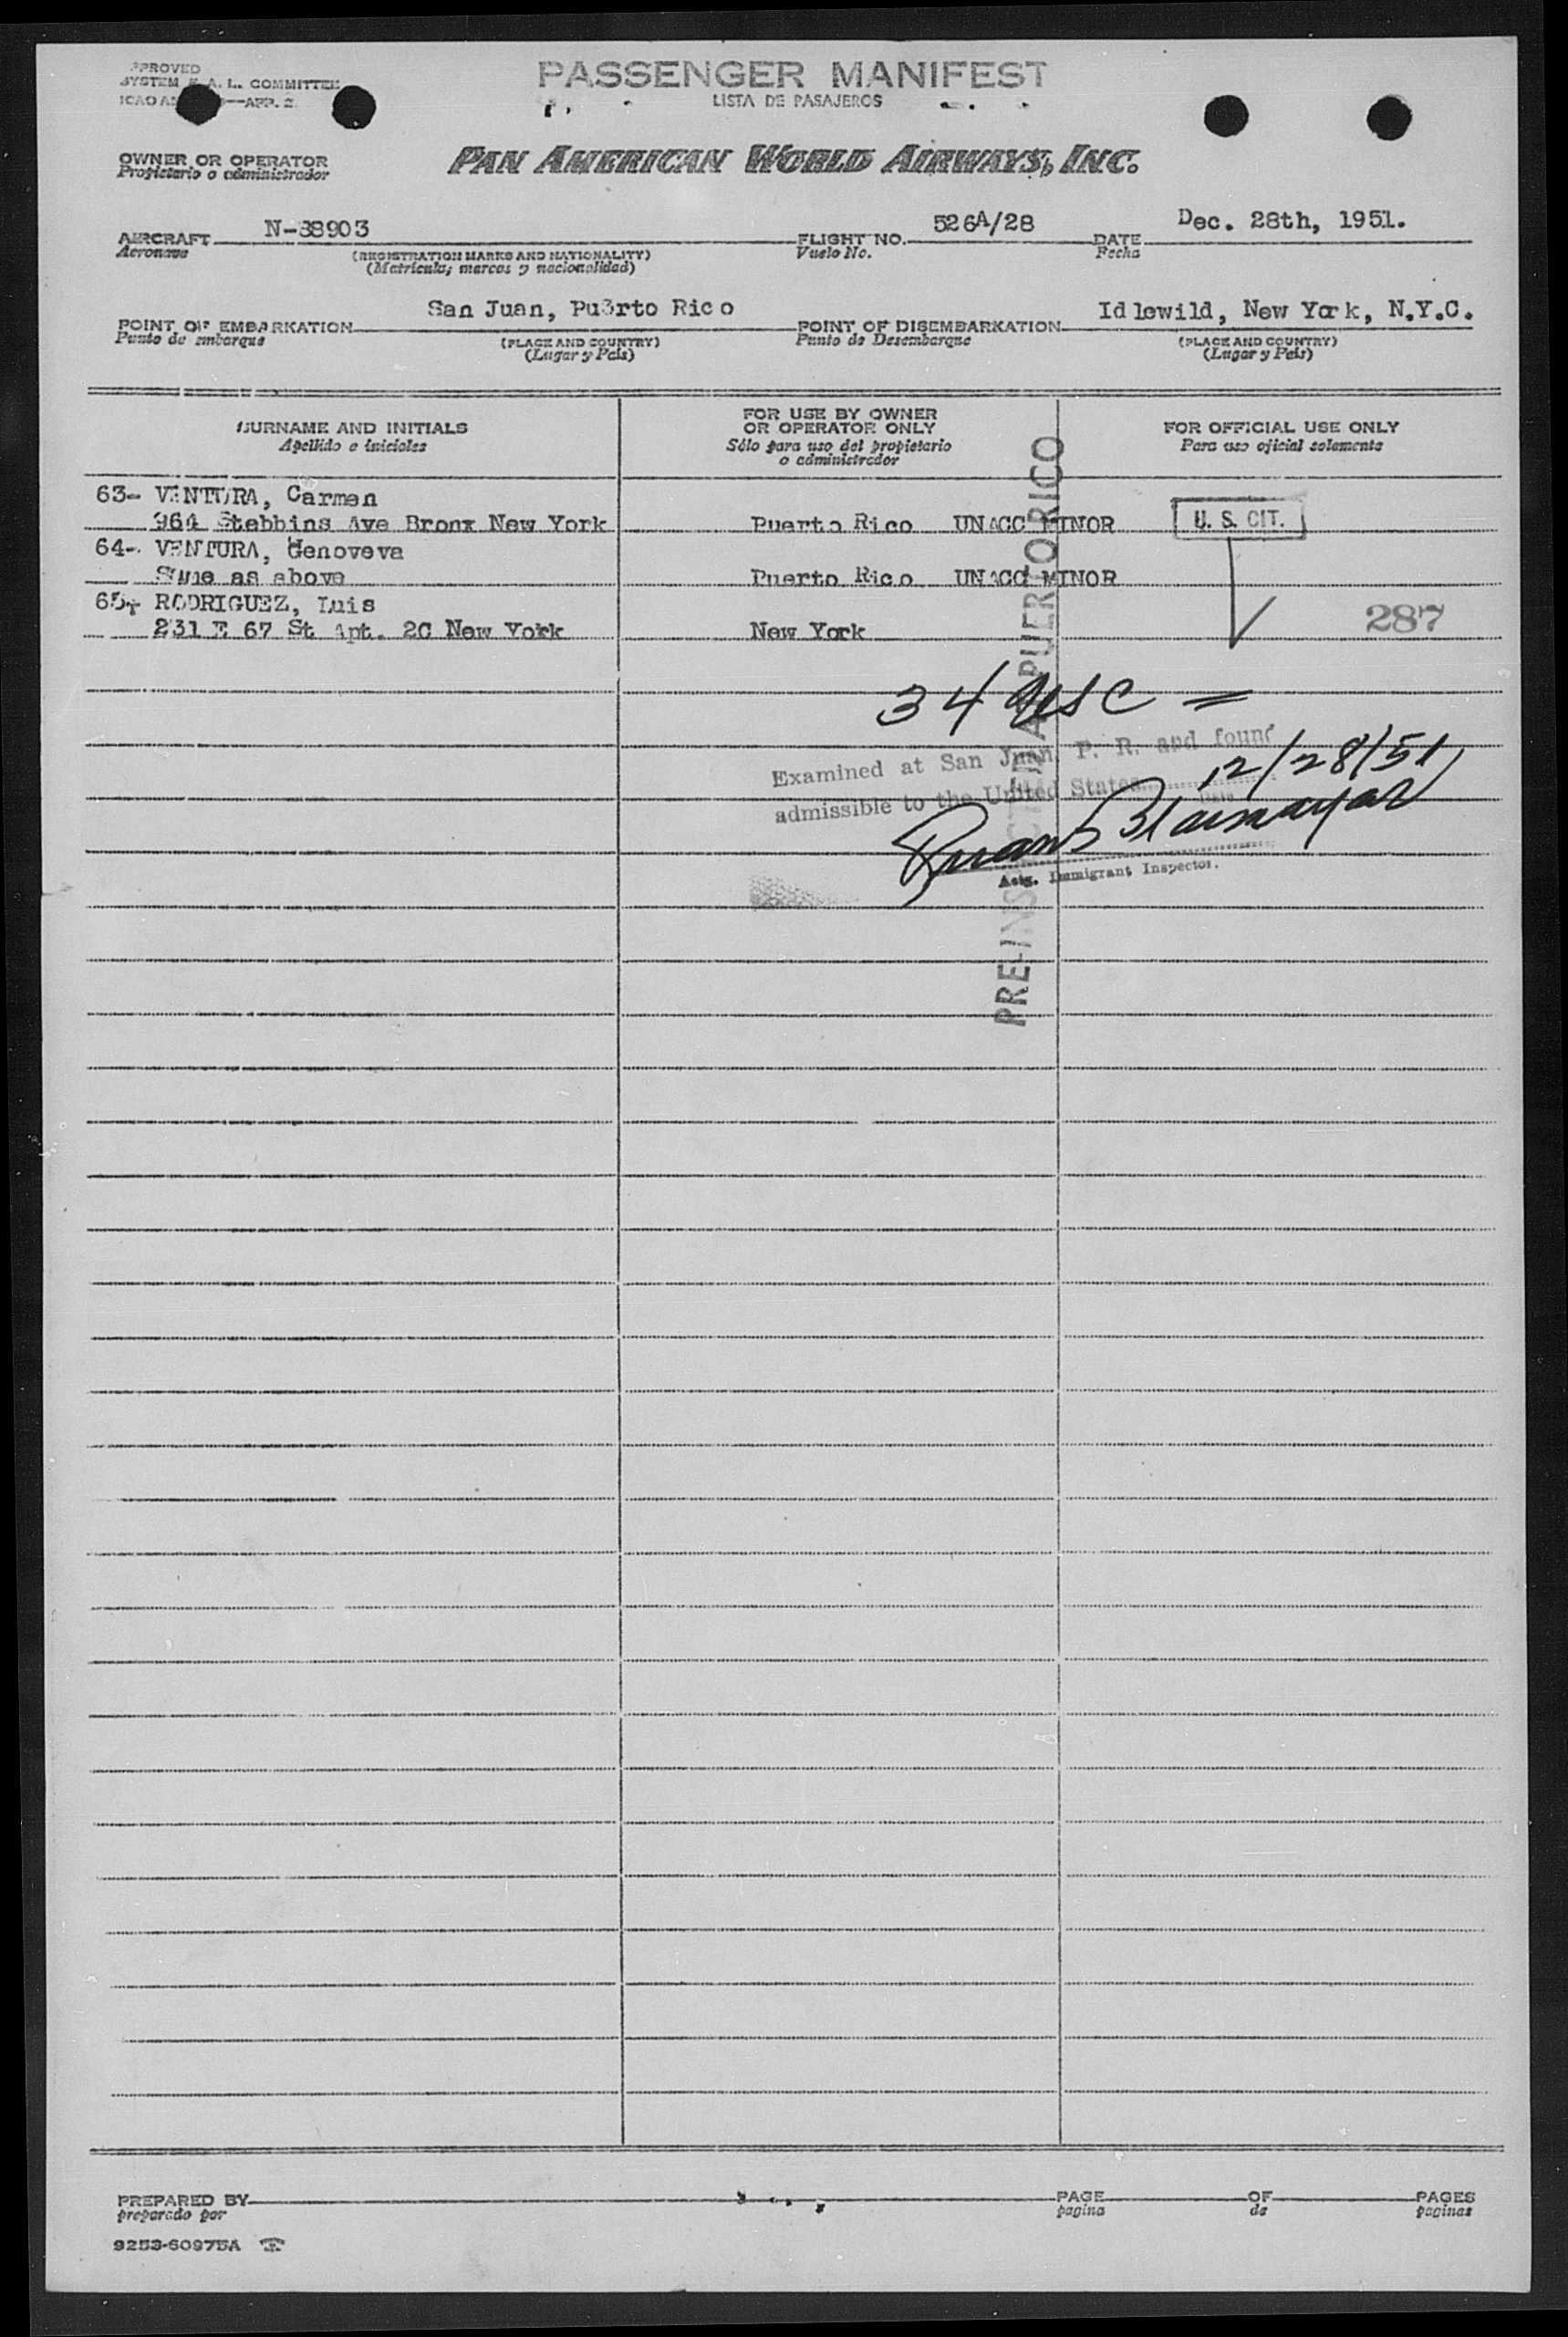 PROVED
SYSTEM A. L. COMMITTEE
ICAO —APP. 2
PASSENGER MANIFEST
LISTA DE PASAJEROS
OWNER OR OPERATOR
Propietario o administrador
PAN AMERICAN WORLD AIRWAYS, INC.
AIRCRAFT N-88903
Aeronave
(REGISTRATION MARKS AND NATIONALITY)
(Matricula, marcas y nacionalidad)
FLIGHT NO. 526A/28
Vuelo No.
DATE Dec. 28th, 1951.
Fecha
POINT OF EMBARKATION San Juan, Pu3rto Rico
Punto de embarque
(PLACE AND COUNTRY)
(Lugar y Pais)
POINT OF DISEMBARKATION Idlewild, New York, N.Y.C.
Punto de Desembarque
(PLACE AND COUNTRY)
(Lugar y Pais)
SURNAME AND INITIALS
Apellido e iniciales
FOR USE BY OWNER
OR OPERATOR ONLY
Sólo para uso del propietario
o administrador
FOR OFFICIAL USE ONLY
Para uso oficial solamente
63- VENTURA, Carmen
964 Stebbins Ave Bronx New York Puerto Rico UNACC MINOR U. S. CIT.
64- VENTURA, Genoveva
Same as above Puerto Rico UNACC MINOR
65- RODRIGUEZ, Luis
231 E 67 St Apt. 2C New York New York 287
34 USC =
PRE-INSPECTED AT PUERTO RICO
Examined at San Juan, P. R. and found
admissible to the United States 12/28/51
Date
Actg. Immigrant Inspector.
PREPARED BY PAGE OF PAGES
preparado por pagina de paginas
9253-60975A